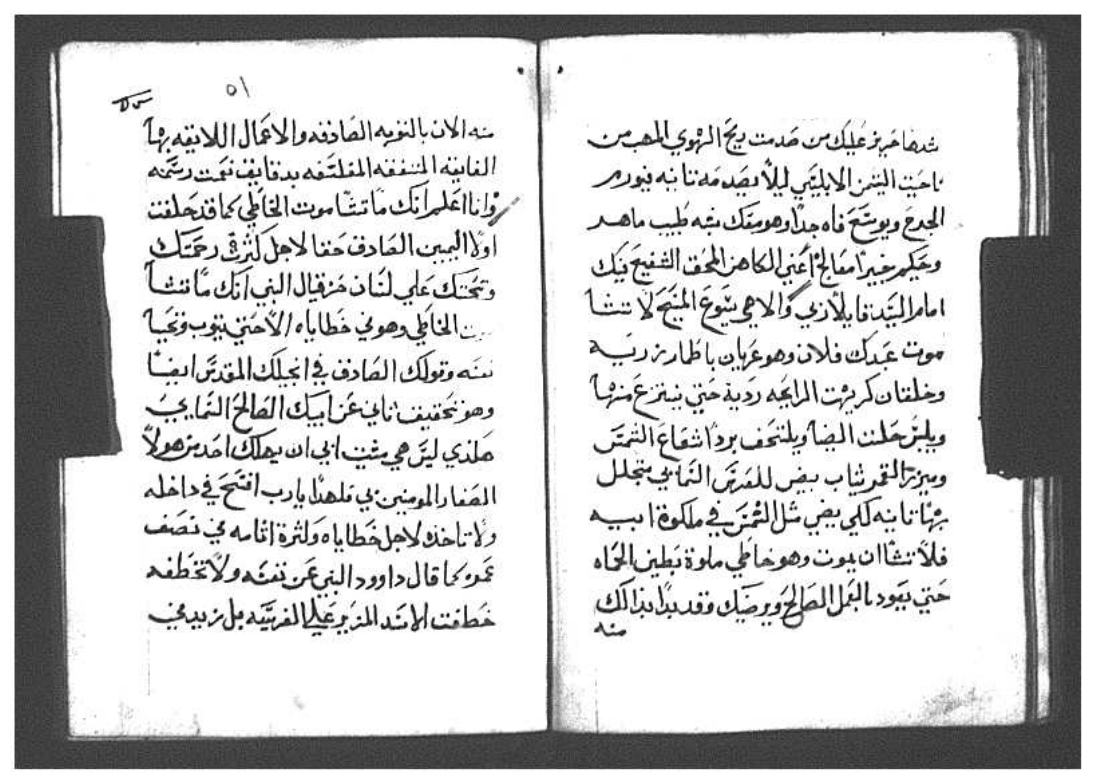 شدها حريز عليك من صدمت ريح الهوي المهب من
ناحيت اليمن الابليسي ليلا يصدمه تانيه فيورم
الجرح ويوسع فاه جدا وهو معك شبه طبيب ماهر
وحكيم خبيرا معالج اعني الكاهن المحق الشفيع فيك
امام السيد قايلا ازلي والاهي يسوع المسيح لا تشا
موت عبدك فلان وهو عريان باطمار رديه
وخلقان كريهت الرايحه ردية حتي ينتزع منها
ويلبس حلت الضيا ويلتحف بردا شعاع الشمس
وميزر القمر ثياب بيض للعرس السمايي متجلل
بها تانيه لكي يضي مثل الشمس في ملكوة ابيه
فلا تشا ان يموت وهو خاطي ملوة بطين الحماه
حتي يعود بالعمل الصالح ويرضيك وقد بدا بذالك
منه
٥١
منه الان بالتوبه الصادقه والاعمال اللايقه بها
الفايقه المتفقه المفلسفه بدقايق نعمت رسمه
وانا اعلم انك ما تشا موت الخاطي كما قد حلفت
اولا اليمين الصادق حقا لاجل كثرت رحمتك
وتحننك علي لسان حزقيال النبي انك ما تشا
موت الخاطي وهو في خطاياه الا حتي يتوب وتحيا
نفسه وقولك الصادق في انجيلك المقدس ايضا
وهو تحقيق تاني عن ابيك الصالح السمايي
هكذي ليس هي مشيت ابي ان يهلك احد من هولا
الصغار المومنين بي فلهذا يارب افتح في داخله
ولا تاخذه لاجل خطاياه ولثرة اثامه في نصف
عمره كما قال داوود النبي عن نفسه ولا تخطفه
خطافت الاسد المزير علي الفريسه بل زيد في